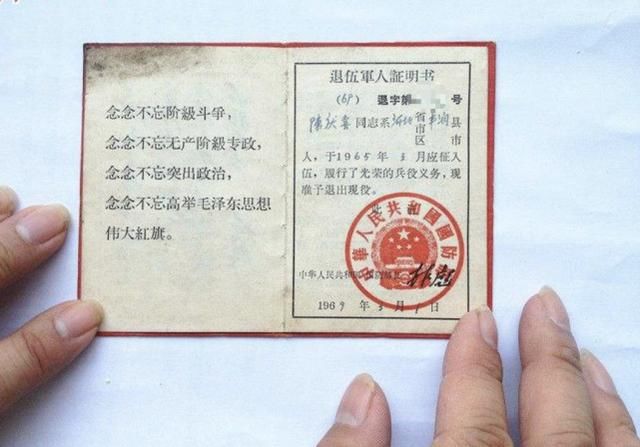 念念不忘阶級斗争，
念念不忘无产阶級专政，
念念不忘突出政治，
念念不忘高举毛泽东思想
伟大紅旗。
退伍軍人証明书
(69) 退字第 号
同志系河北省市区丰润县市
人，于1965年3月应征入
伍，履行了光荣的兵役义务，現
准予退出現役。
中华人民共和国国防部
中华人民共和国国防部部长 林彪
1969年3月1日